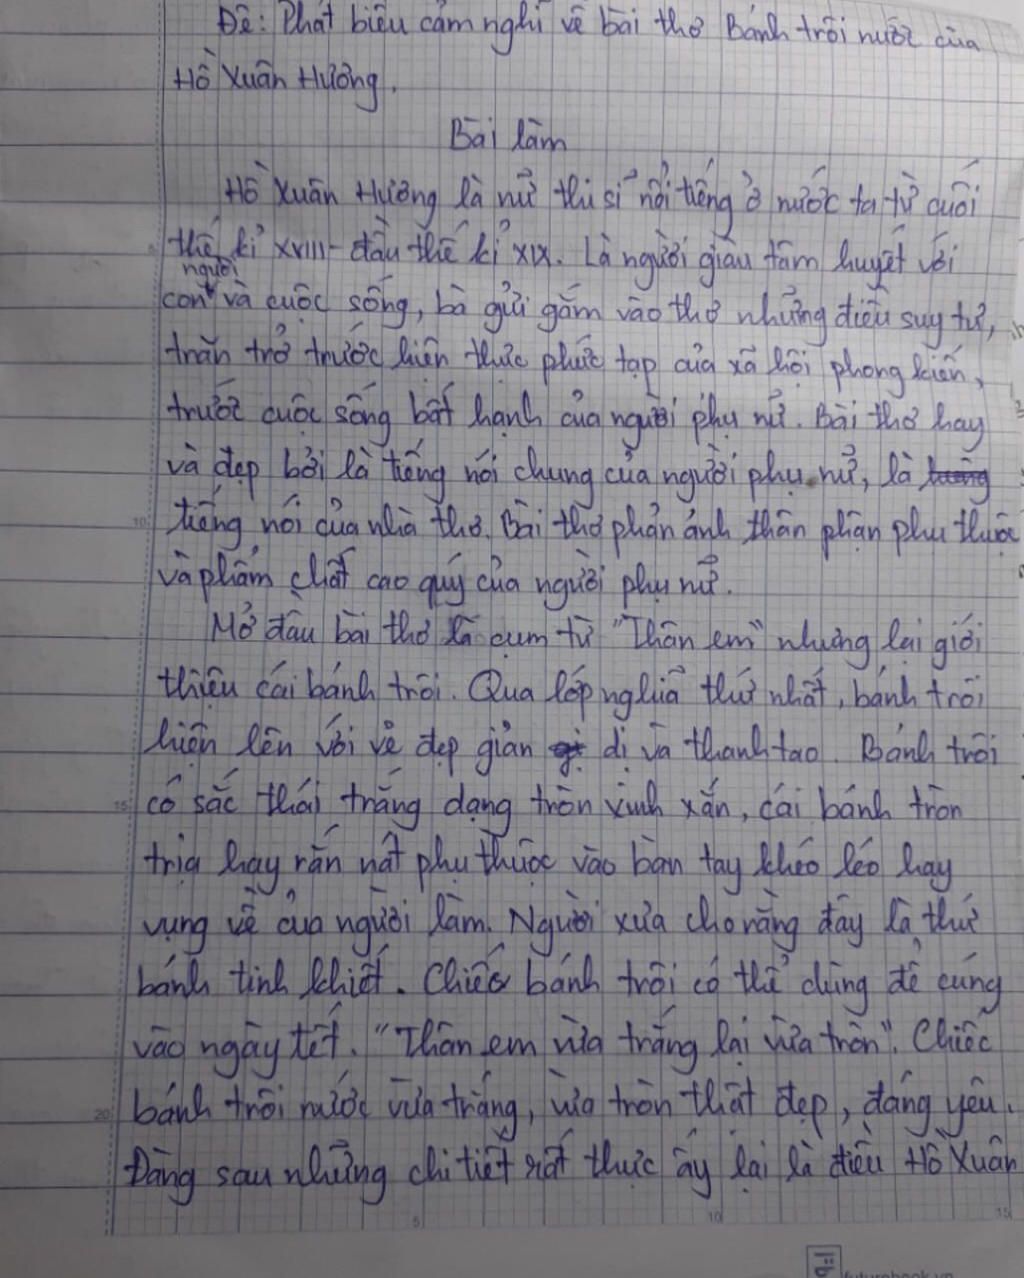 Đề: Phát biểu cảm nghĩ về bài thơ Bánh trôi nước của
Hồ Xuân Hương.
Bài làm
Hồ Xuân Hương là nữ thi sĩ nổi tiếng ở nước ta từ cuối
thế kỉ XVIII - đầu thế kỉ XIX. Là người giàu tâm huyết với
người
con và cuộc sống, bà gửi gắm vào thơ những điều suy tư,
trăn trở trước hiện thực phức tạp của xã hội phong kiến,
trước cuộc sống bất hạnh của người phụ nữ. Bài thơ hay
và đẹp bởi là tiếng nói chung của người phụ nữ, là
10 tiếng nói của nhà thơ. Bài thơ phản ánh thân phận phụ thuộc
và phẩm chất cao quý của người phụ nữ.
Mở đầu bài thơ là cụm từ "Thân em" nhưng lại giới
thiệu cái bánh trôi. Qua lớp nghĩa thứ nhất, bánh trôi
hiện lên với vẻ đẹp giản dị và thanh tao. Bánh trôi
15 có sắc thái trắng dạng tròn xinh xắn, cái bánh tròn
trịa hay rắn nát phụ thuộc vào bàn tay khéo léo hay
vụng về của người làm. Người xưa cho rằng đây là thứ
bánh tinh khiết. Chiếc bánh trôi có thể dùng để cúng
vào ngày tết. "Thân em vừa trắng lại vừa tròn". Chiếc
20 bánh trôi nước vừa trắng, vừa tròn thật đẹp, đáng yêu.
Đằng sau những chi tiết rất thực ấy lại là điều Hồ Xuân
5 10 15